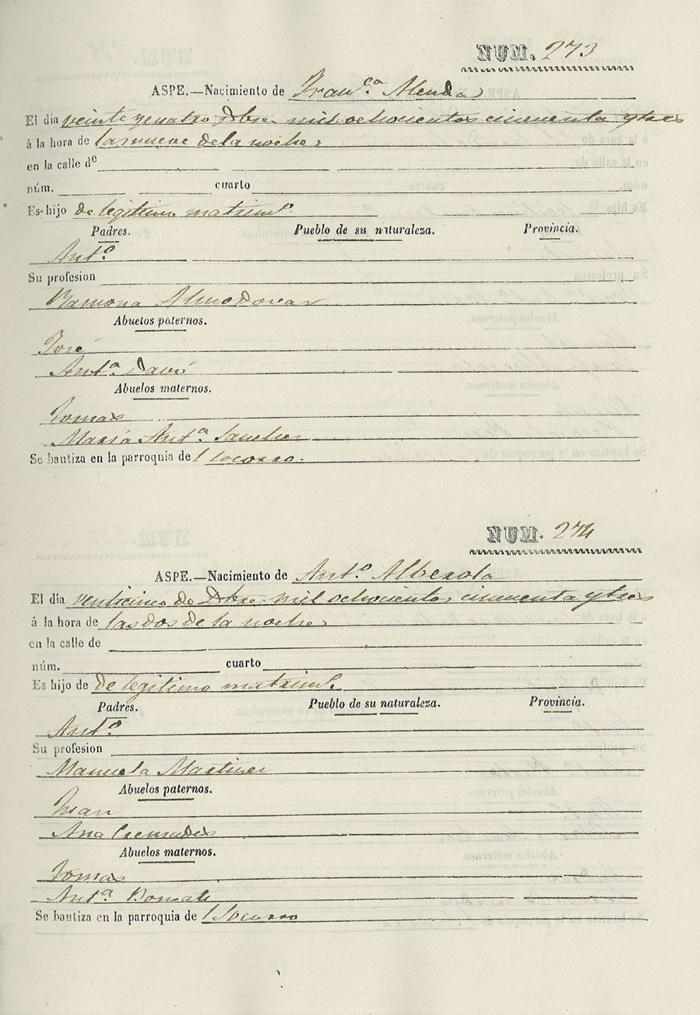 NUM. 273
ASPE.—Nacimiento de Fran.ca Alenda
El día veinte y cuatro Dbre. mil ochocientos cincuenta y tres
á la hora de las nueve de la noche
en la calle de
núm. cuarto
Es hijo de legitimo matrim.o
Padres. Pueblo de su naturaleza. Provincia.
Ant.o
Su profesion
Ramona Almodovar
Abuelos paternos.
José
Ant.a Davó
Abuelos maternos.
Tomas
Maria Ant.a Sanchez
Se bautiza en la parroquia del Socorro.
NUM. 274
ASPE.—Nacimiento de Ant.o Alberola
El día
de Dbre. mil ochocientos cincuenta y tres
á la hora de las dos de la noche
en la calle de
núm. cuarto
Es hijo de de legitimo matrim.o
Padres. Pueblo de su naturaleza. Provincia.
Ant.o
Su profesion
Manuela Martinez
Abuelos paternos.
Juan
Ana Cremades
Abuelos maternos.
Tomas
Ant.a
Se bautiza en la parroquia de l Socorro